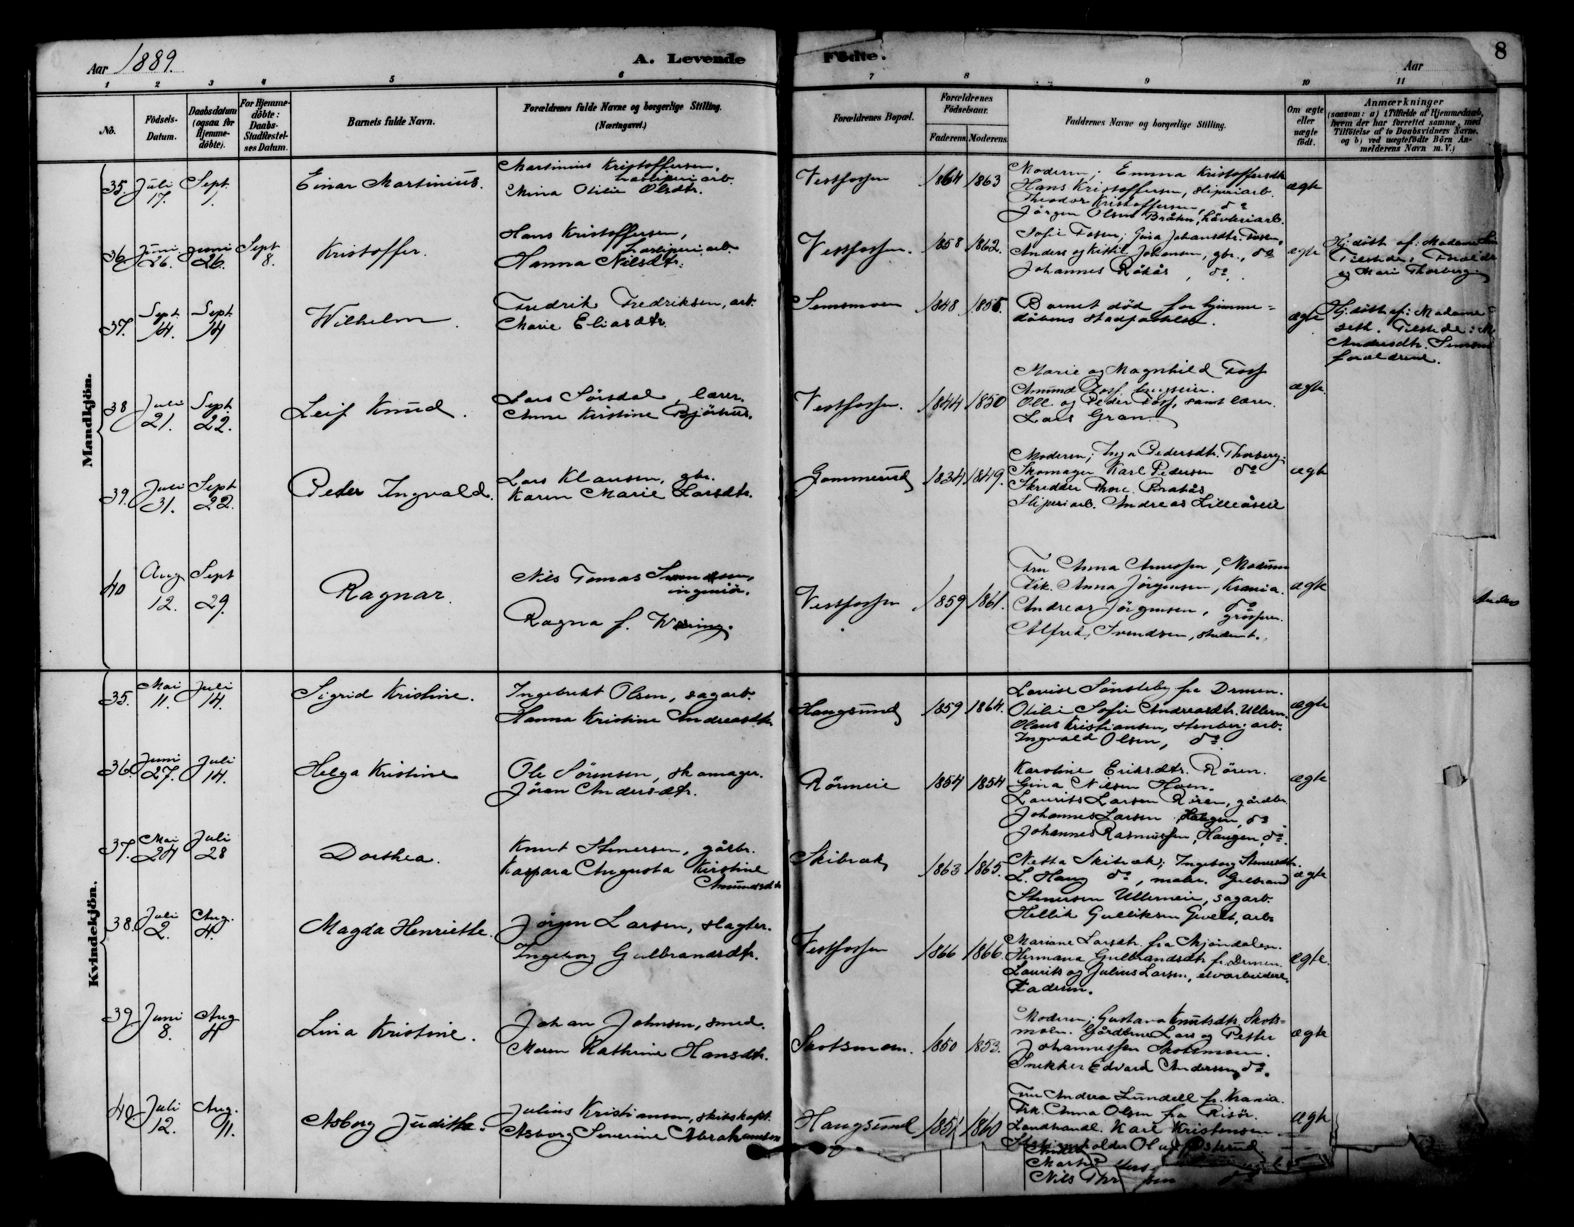 Aar 1889.
A. Levende
Födte.
8
Aar
1 2 3 4 5 6 7 8 9 10 11
No.
Födsels-Datum.
Daabsdatum (ogsaa for Hjemme-döbte).
For Hjemme-döbte: Daabs-Stadfæstel-ses Datum.
Barnets fulde Navn.
Forældrenes fulde Navne og borgerlige Stilling. (Næringsvei.)
Forældrenes Bopæl.
Forældrenes Födselsaar.
Faderens. Moderens.
Faddernes Navne og borgerlige Stilling.
Om ægte eller uægte födt.
Anmærkninger
(saasom: a) i Tilfælde af Hjemmedaab, hvem der har forrettet samme, med Tilföielse af to Daabsvidners Navne, og b) ved uægtefödte Börn An-melderens Navn m. V.)
Mandkjön.
35. Juli 17. Sept. 1.
Einar Martinius.
Martinius Kristoffersen,
arb.
Mina Otilie Olsdtr.
Vestfossen 1864 1863
Moderen; Emma Kristoffersdtr
Hans Kristoffersen, sliperiarb.
Theodor Kristoffersen, do
Jörgen Olsen Bråten,
ægte
36. Juni 26. Juni 26. Sept 8.
Kristoffer.
Hans Kristoffersen,
arb
Hanna Nilsdtr.
Vestfossen. 1858 1862.
Sofie Fosen; Gina Johansdtr. Fosen,
Anders og Kistil Johansen, gbr., do
Johannes Rökås, do.
ægte
Hj. döbt af: Madame
Tilstede: Foræld
og Mari Thorberg
37. Sept 14. Sept 14
Wilhelm.
Fredrik Fredriksen, arb.
Marie Eliasdtr.
Semsmoen 1848 1855.
Barnet död för hjemme-
döbens
ægte
Hj. döbt af: Madame
Tilstede: M
Andersdtr.
forældrene.
38 Juli 21. Sept. 22.
Leif Knud.
Lars Sörsdal, lærer.
Anne Kirstine Björhus.
Vestfossen. 1844 1850
Marie og Magnhild Foss
Amund Foss
Ole og Peder Foss, samt lærer
Lars Gran.
ægte
39. Juli 31. Sept 22.
Peder Ingvald.
Lars Klausen, gbr.
Karen Marie Larsdtr.
Gommerud 1834 1849.
Moderen; Inga Pedersdtr. Thorberg.
Skomager Karl Pedersen do
Skredder
Sliperiarb. Andreas Lilleåseie
ægte
40 Aug 12. Sept 29.
Ragnar.
Nils Tomas Svendsen,
ingeniör.
Ragna f. Wæring.
Vestfossen 1859 1861.
Fru Anna Amessen, Modum
Frk. Anna Jörgensen, Krania.
Andreas Jörgensen, do
grosserer.
Alfred Svendsen, student.
ægte
Anders
Kvindekjön.
35. Mai 11. Juli 14.
Sigrid Kristine.
Ingebrekt Olsen, sagarb.
Hanna Kristine Andreasdtr.
Haugsund 1859 1864.
Lovise Sönsteby fra Drmen.
Otilie Sofie Andreasdtr. Ullern.
Olaus Kristiansen, arb.
Ingvald Olsen, do.
ægte
36. Juni 27. Juli 14.
Helga Kristine
Ole Sörensen, skomager.
Jöran Andersdtr.
Röreneie 1854 1854
Karoline Eriksdtr. Rören.
Gina Nilsen Hoen.
Laurits Larsen Rören, gårdbr.
Johannes Larsen Haugen, do
Johannes Rasmussen Haugen, do.
ægte
37. Mai 24 Juli 28
Dorthea.
Knut Stenersen, gårbr.
Kaspara Augusta Kirstine
Amundsdtr
Skibrak 1863 1865.
Netta Skibrak; Ingeborg Stenersdtr.
L. Haug do, maler. Gulbrand
Stenersen Ullerneie, sagarb.
Hellik Gulliksen arb
ægte
38. Juli 2. Aug. 4.
Magda Henriette.
Jörgen Larsen, slagter.
Ingeborg Gulbrandsdtr.
Vestfossen 1866 1866
Mariane Larsdtr. fra Mjöndalen.
Hermana Gulbrandsdtr fr. Drmen.
Laurits og Julius Larsen, elvearbeidere.
Faderen.
ægte.
39 Juni 8. Aug 4
Lina Kristine.
Johan Johnsen, smed.
Maren Kathrine Hansdtr.
Skotsmoen. 1850 1853.
Moderen; Gustava Knutsdtr Skots-
moen. Gårdbrne Lars og Petter
Johannessen Skotsmoen.
Snekker Edvard Andersen, do.
ægte
40 Juli 12. Aug. 11.
Asborg Juditha.
Julius Kristiansen, skibskapt.
Asborg Severine Abrahamsen
Haugsund 1851 1860
Fru Andrea Lundell fr. Krania.
Frk. Anna Olsen fra Risör.
Landhandl. Karl Kristensen
Nils
do
ægte